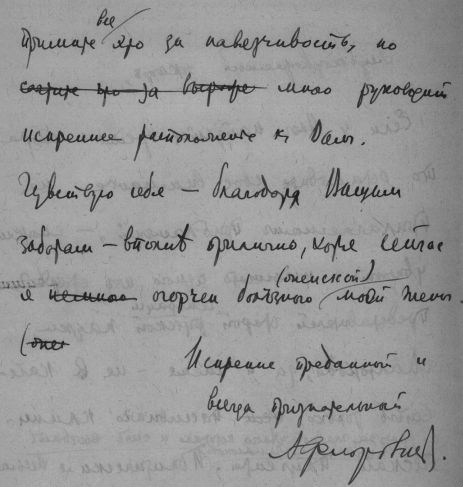 все
Примите это за навязчивость, но
сочтите это за мною руководит
искреннее расположение к Вам.
Чувствую себя – благодаря Вашим
заботам – вполне прилично, хотя сейчас
(женской)
я немного огорчен болезнью моей жены.
(
Искренне преданный и
всегда признательный